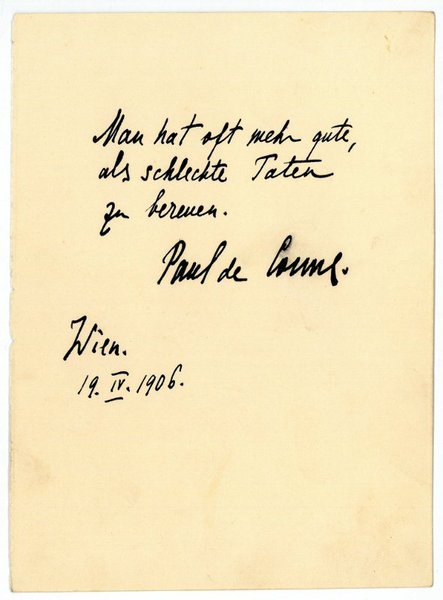 Man hat oft mehr gute,
als schlechte Taten
zu bereuen.
Paul de Conne.
Wien.
19. IV. 1906.